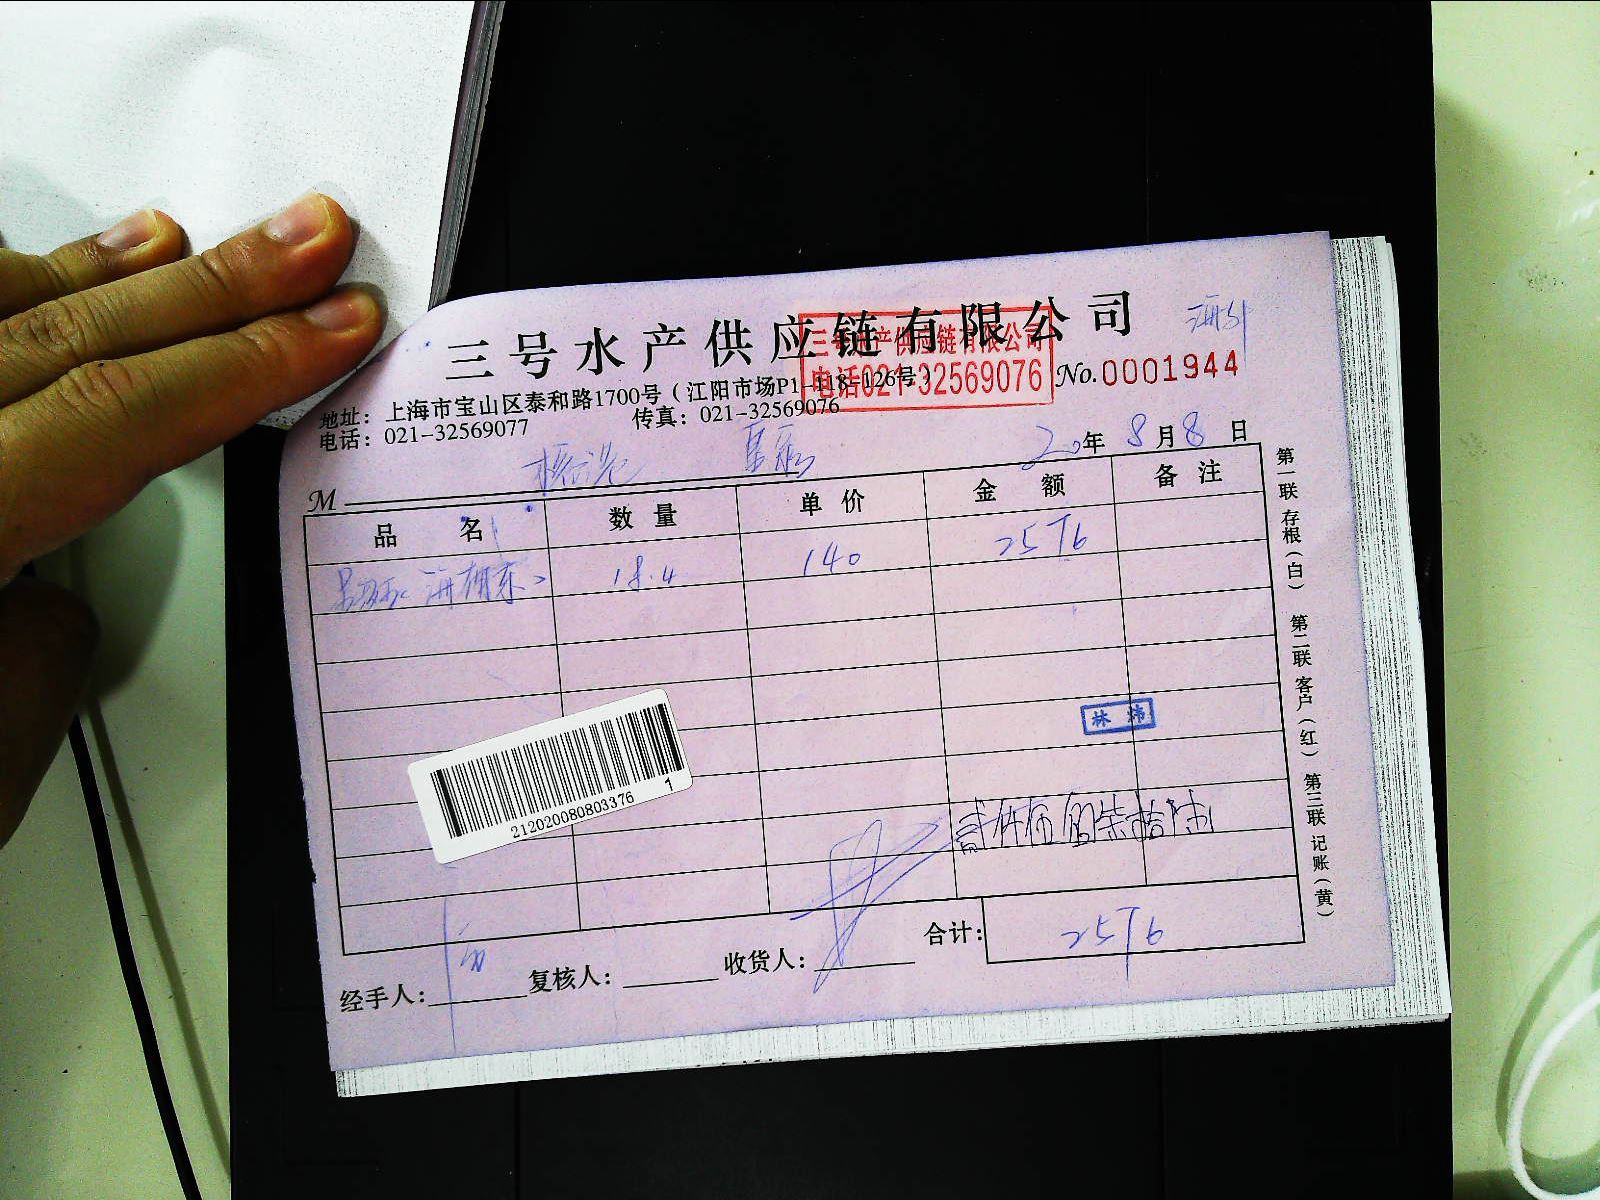 三号水产供应链有限公司
三号水产供应链有限公司
电话021-32569076
No.0001944
地址：上海市宝山区泰和路1700号（江阳市场P1-118-126号）
电话：021-32569077 传真：021-32569076
20年 8月8日
M
品 名 数 量 单 价 金 额 备 注
18.4 140 2576
林 炜
212020080803376 1
贰仟伍佰柒拾陆
合计： 2576
经手人： 复核人： 收货人：
第一联 存根（白） 第二联 客户（红） 第三联 记账（黄）